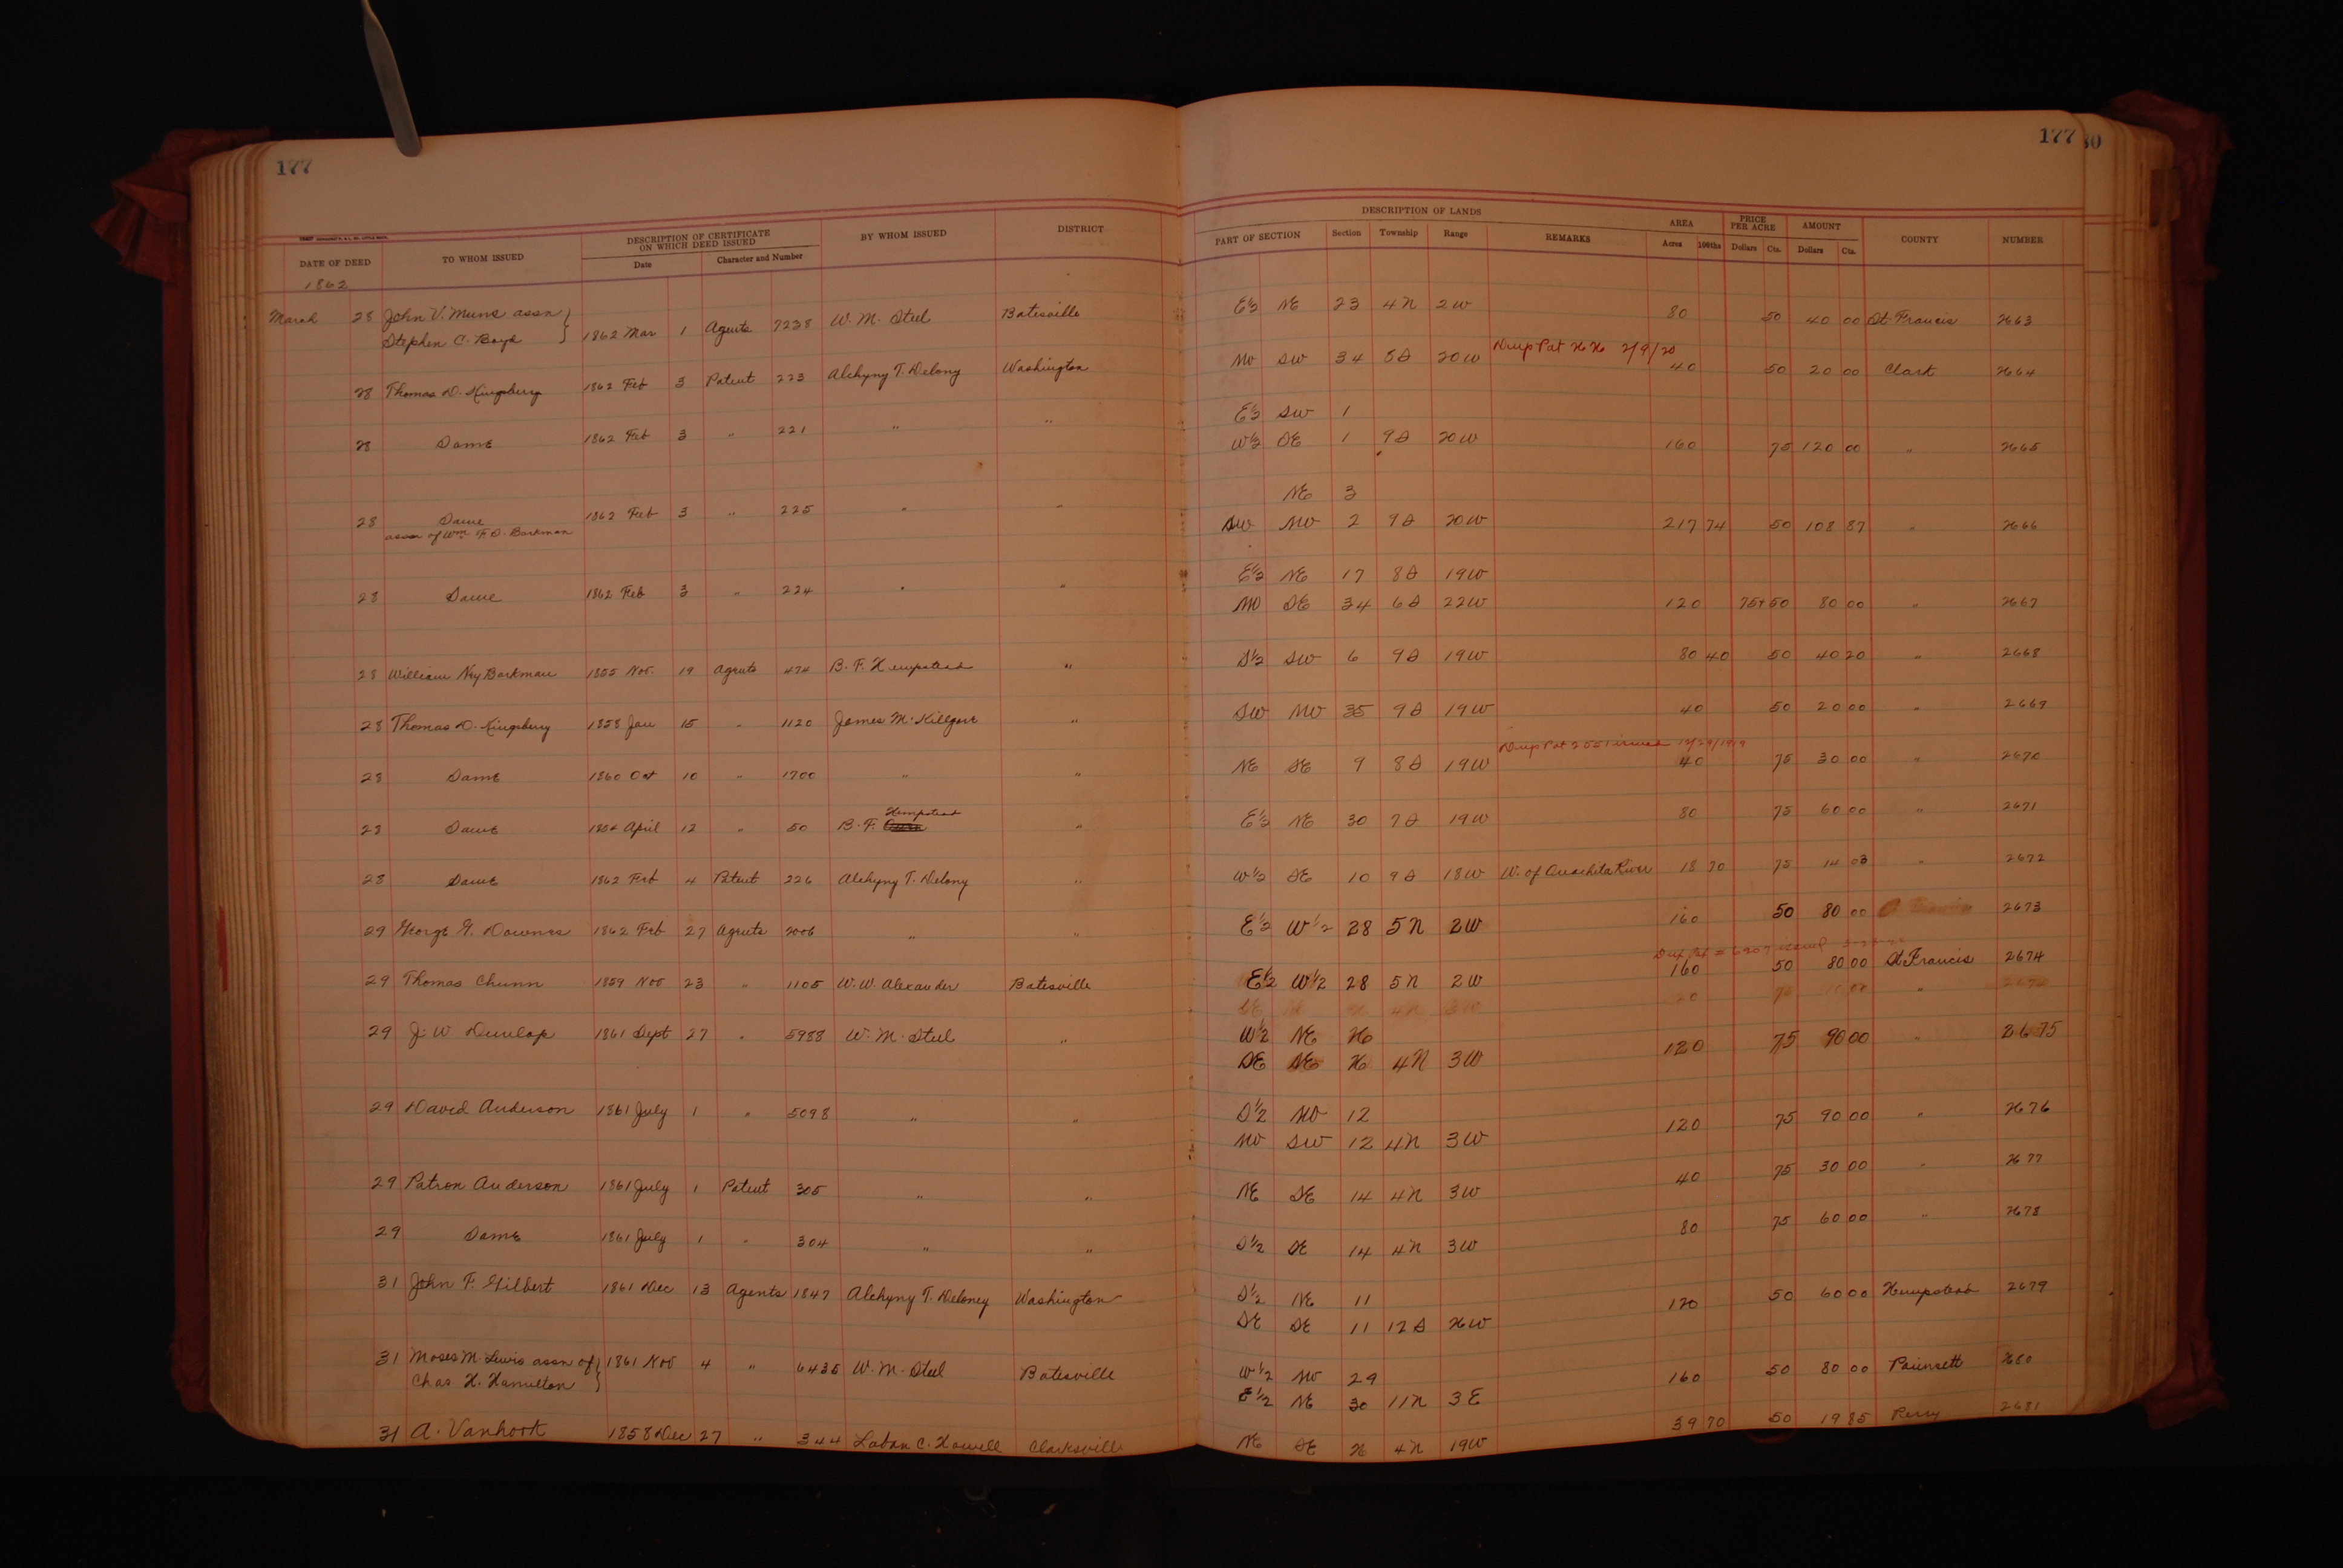 177
177
DATE OF DEED
TO WHOM ISSUED
DESCRIPTION OF CERTIFICATE
ON WHICH DEED ISSUED
Date
Character and Number
BY WHOM ISSUED
DISTRICT
DESCRIPTION OF LANDS
PART OF SECTION
Section
Township
Range
REMARKS
AREA
Acres
100ths
PRICE
PER ACRE
Dollars
Cts.
AMOUNT
Dollars
Cts.
COUNTY
NUMBER
1862
March 28 John V. Muns assn
Stephen C. Boyd } 1862 Mar 1 Agents 7238 W. M. Steel Batesville E½ NE 23 4N 2W 80 50 40 00 St. Francis 2663
28 Thomas D. Kingsberry 1862 Feb 3 Patent 223 Alchyny T. Delony Washington NW SW 34 5S 20W 2/9/20 40 50 20 00 Clark 2664
E½ SW 1
28 Same 1862 Feb 3 " 221 " " W½ SE 1 9S 20W 160 75 120 00 " 2665
NE 3
28 Same 1862 Feb 3 " 225 " " SW NW 2 9S 20W 217 74 50 108 87 " 2666
assn of Wm F. D. Barkman
E½ NE 17 8S 19W
28 Same 1862 Feb 3 " 224 " " NW SE 34 6S 22W 120 75+50 80 00 " 2667
28 William Ney Barkman 1855 Nov. 19 Agents 474 B. F. Hempstead " S½ SW 6 9S 19W 80 40 50 40 20 " 2668
28 Thomas D. Kingsberry 1858 Jan 15 " 1120 James M. Killgore " SW NW 35 9S 19W 40 50 20 00 " 2669
Dup Pat 2551 issued 12/29/1919
28 Same 1860 Oct 10 " 1700 " " NE SE 9 8S 19W 40 75 30 00 " 2670
Hempstead
28 Same 1854 April 12 " 50 B. F. " E½ NE 30 7S 19W 80 75 60 00 " 2671
28 Same 1862 Feb 4 Patent 226 Alchyny T. Delony " W½ SE 10 9S 18W W. of Ouachita River 18 70 75 14 03 " 2672
29 George G. Downes 1862 Feb 27 Agents 2006 " " E½ W½ 28 5N 2W 160 50 80 00 2673
29 Thomas Chunn 1859 Nov 23 " 1105 W. W. Alexander Batesville E½ W½ 28 5N 2W 160 50 80 00 St Francis 2674
29 J. W Dunlap 1861 Sept 27 " 5988 W. M. Steel " W½ NE 26
SE NE 26 4N 3W 120 75 90 00 " 2675
29 David Anderson 1861 July 1 " 5098 " " S½ NW 12
NW SW 12 4N 3W 120 75 90 00 " 2676
29 Patron Anderson 1861 July 1 Patent 305 " " NE SE 14 4N 3W 40 75 30 00 " 2677
29 Same 1861 July 1 " 304 " " S½ SE 14 4N 3W 80 75 60 00 " 2678
31 John F. Gilbert 1861 Dec 13 Agents 1847 Alchyny T. Deloney Washington S½ NE 11
SE SE 11 12S 26W 120 50 60 00 Hempstead 2679
31 Moses M. Lewis assn of
Chas. H. Hamilton } 1861 Nov 4 " 6435 W. M. Steel Batesville W½ NW 29
E½ NE 30 11N 3E 160 50 80 00 Poinsett 2680
31 A. Vanhook 1858 Dec 27 " 344 Laban C. Howell Clarksville NE SE 26 4N 19W 39 70 50 19 85 Perry 2681